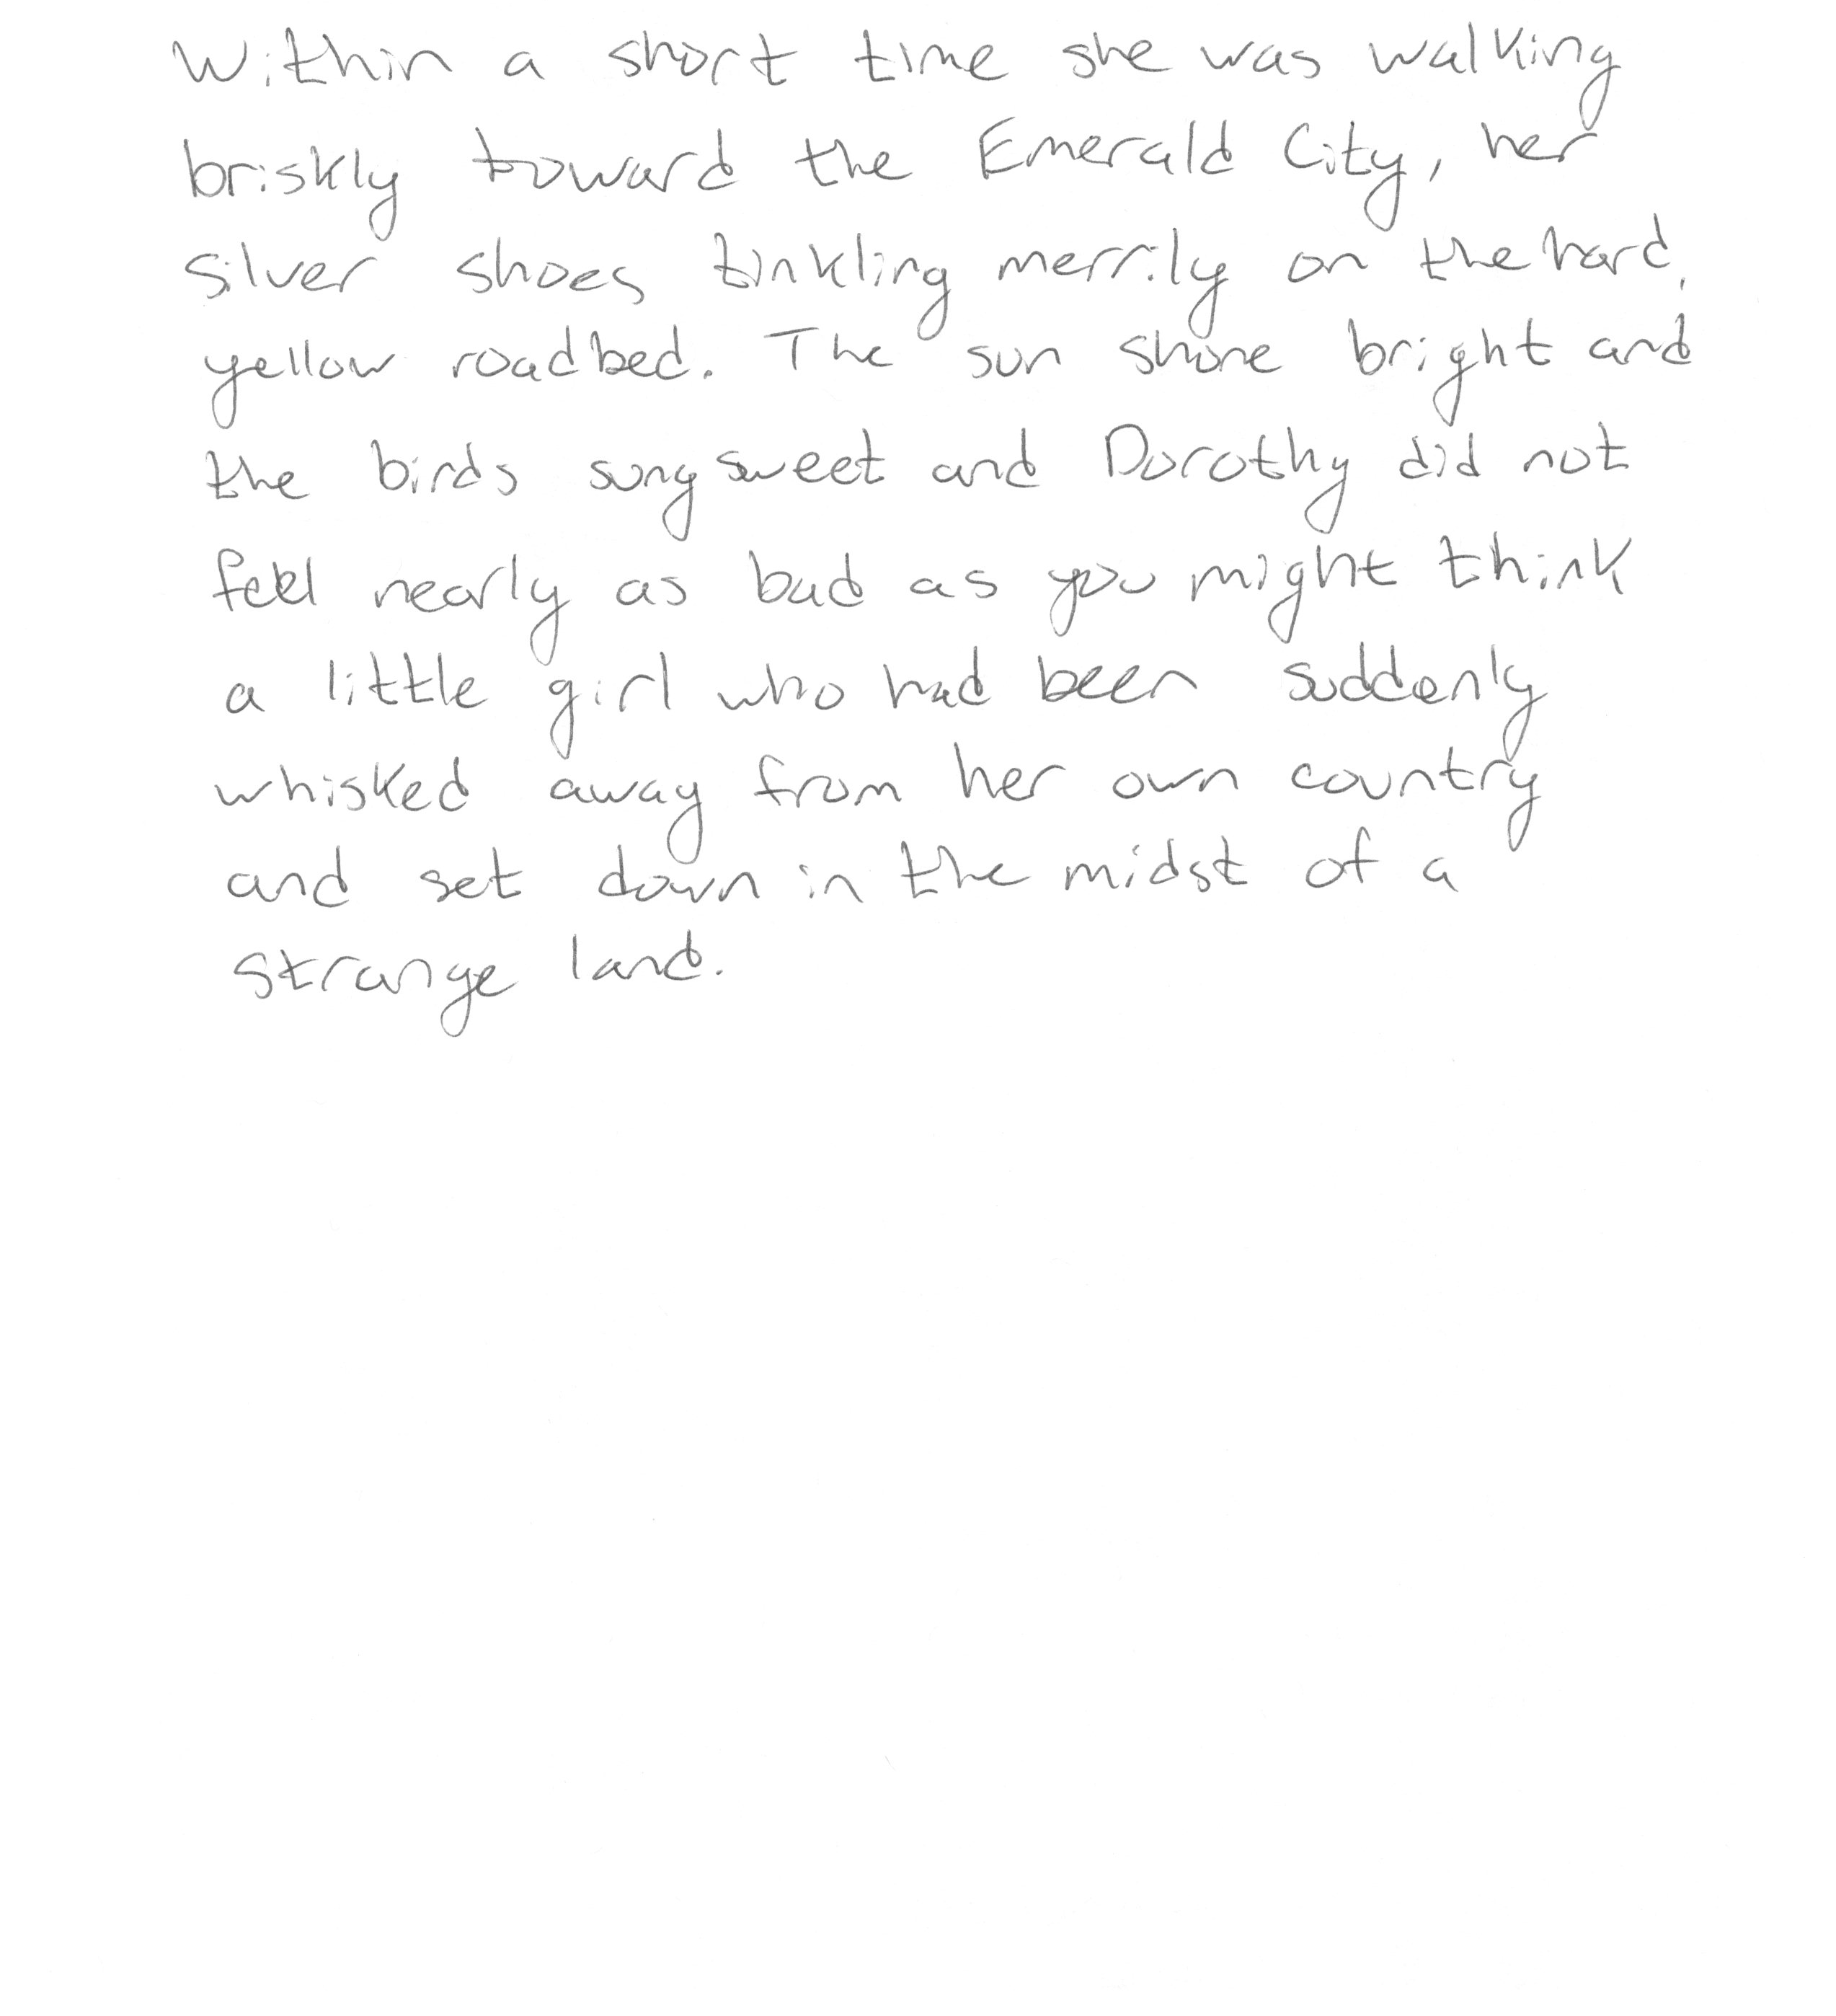 Within a short time she was walking
briskly toward the Emerald City, her
silver shoes tinkling merrily on the hard,
yellow roadbed. The sun shone bright and
the birds sung sweet and Dorothy did not
feel nearly as bad as you might think
a little girl who had been suddenly
whisked away from her own country
and set down in the midst of a
strange land.